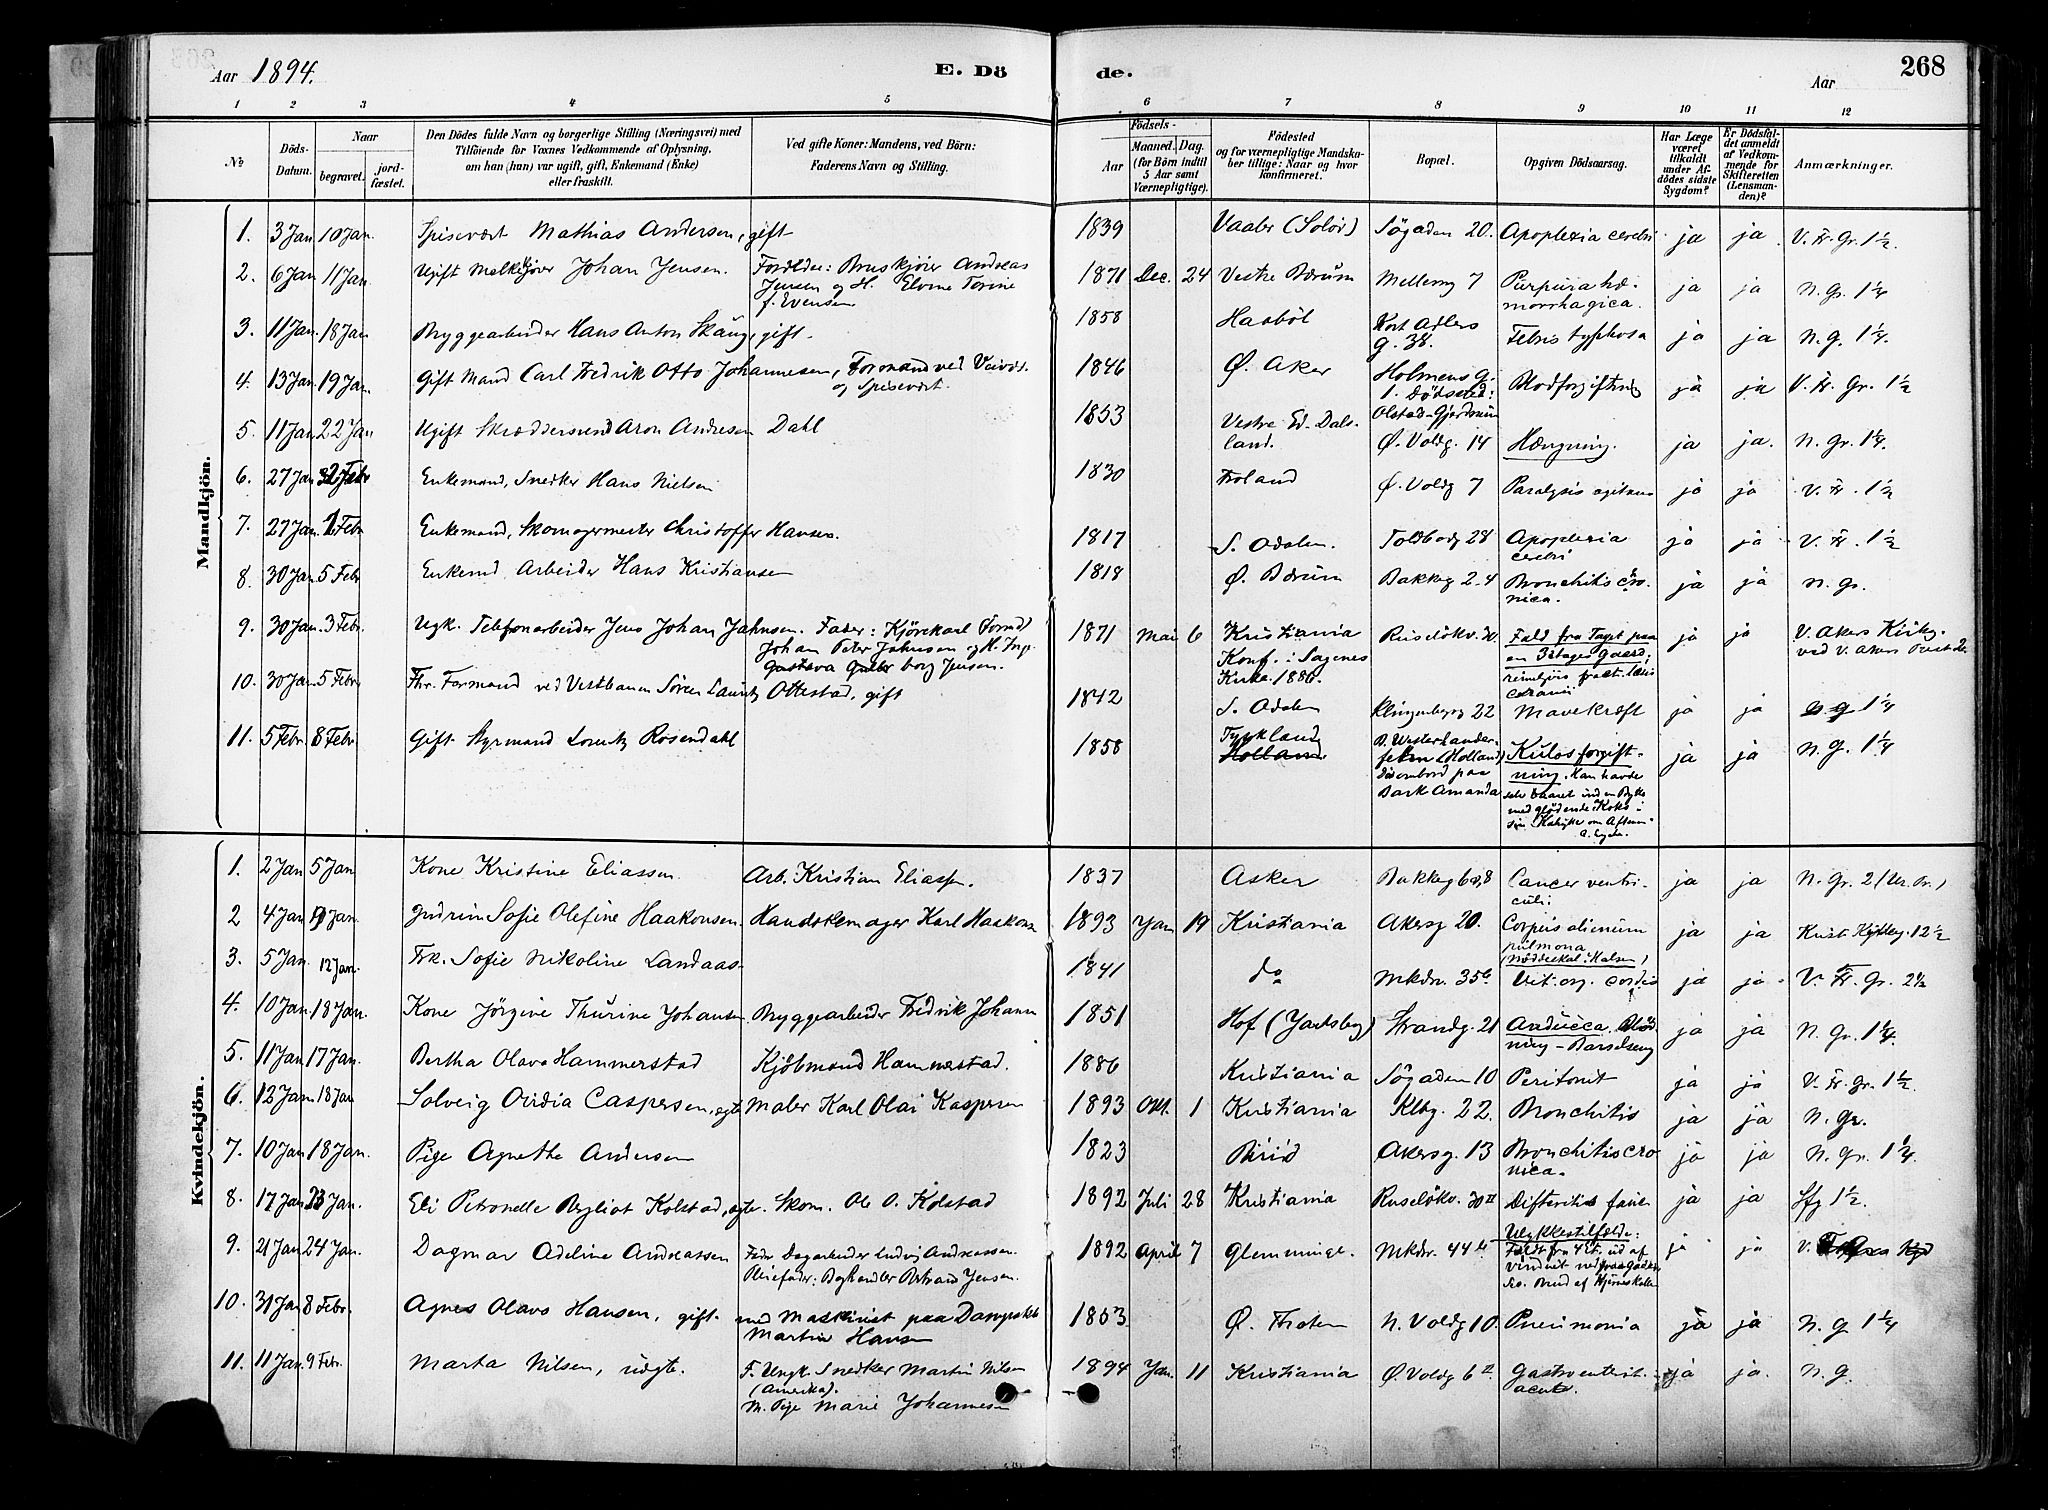 Aar 1894.
E. Dö
de.
Aar
268
1 2 3 4 5 6 7 8 9 10 11 12
No
Döds-Datum.
Naar
begravet.
jord-fæstet.
Den Dödes fulde Navn og borgerlige Stilling (Næringsvei) med
Tilföiende for Voxnes Vedkommende af Oplysning,
om han (hun) var ugift, gift, Enkemand (Enke)
eller fraskilt.
Ved gifte Koner: Mandens, ved Börn:
Faderens Navn og Stilling.
Födsels-
Aar
Maaned. Dag.
(for Börn indtil
5 Aar samt
Værnepligtige).
Födested
og for værnepligtige Mandska-
ber tillige: Naar og hvor
konfirmeret.
Bopæl.
Opgiven Dödsaarsag.
Har Læge
været
tilkaldt
under Af-
dödes sidste
Sygdom?
Er Dödsfal-
det anmeldt
af Vedkom-
mende for
Skifteretten
(Lensman-
den)?
Anmærkninger.
Mandkjön.
1. 3 Jan 10 Jan. Spisevært Mathias Andersen, gift 1839 Vaaler (Solör) Sögaden 20. Apoplexia cerebri ja ja. V. Fr. Gr. 1 1/2
2. 6 Jan 11 Jan. Ugift Melkekjörer Johan Jensen. Forældre: Bruskjörer Andreas
Jensen og H. Elvine Torine
f. Evensen
1871 Dec. 24 Vestre Bærum Mellemg 7 Purpura hæ-
morrhagica.
ja ja N. Gr. 1 1/4
3. 11 Jan. 18 Jan Bryggearbeider Hans Anton Skaug, gift. 1858 Haaböl Kort Adlers
g. 38.
Febris typhosa ja ja N. G. 1 1/4.
4. 13 Jan. 19 Jan. Gift Mand Carl Fredrik Otto Johannesen, Formand ved
og Spisevært.
1846 Ø. Aker Holmens G.
1. Dödssted:
Olstad-Gjerdrum
Blodforgiftning ja ja V. Fr. Gr. 1 1/2
5. 11 Jan 22 Jan Ugift Skræddersvend Aron Andresen Dahl 1853 Vestre Ed. Dals-
land.
Ø. Voldg. 14 Hængning. ja ja. N. Gr. 1 1/4.
6. 27 Jan 2 Febr Enkemand, Snedker Hans Nielsen 1830 Froland Ø. Voldg 7 Paralysis agitans ja ja V. Fr. 1 1/2
7. 27 Jan. 1 Febr Enkemand, Skomagermester Christoffer Hansen. 1817 S. Odalen. Toldbodg 28 Apoplexia
cerebri
ja ja V. Fr. 1 1/2
8. 30 Jan. 5 Febr Enkemd. Arbeider Hans Kristiansen 1818 Ø. Bærum Bakkeg 2-4 Bronchitis cro-
nica.
ja ja N. Gr.
9. 30 Jan. 3 Febr. Ugk. Telefonarbeider Jens Johan Jahnsen. Fader: Kjörekarl Formd)
Johan Peter Jahnsen og H. Inge
Gustava Gulborg Jensen.
1871 Mai 6 Kristiania
Konf. i Sagenes
Kirke 1886.
Ruselökv. Fald fra Taget paa
en 3 etages Gaard;
fract. basis
cranii
ja ja V. Akers Kirkeg.
ved V. Akers
10. 30 Jan. 5 Febr. Fhv. Formand ved Vestbanen Sören Lauritz Ottestad, gift 1842 S. Odalen Klingenbergg 22 Mavekræft ja ja 1 1/4
11. 5 Febr. 8 Febr. Gift Styrmand Lorentz Rosendahl 1858 Tyskland
Holland.
(Holland)
ombord paa
Bark Amanda
Kulosforgift-
ning. Han havde
selv baaret ind en Bytte
med glödende Koks i
sin Kahytte om Aftenen
ja ja N. G. 1 1/4
Kvindekjön.
1. 2 Jan 5 Jan Kone Kristine Eliassen. Arb. Kristian Eliassen. 1837 Asker Bakkeg 6&8 Cancer ventri-
culi.
ja ja N. Gr. 2
2 4 Jan Jan. Gudrun Sofie Olefine Haakonsen. Handskemager Karl Haakonsen 1893 Jan 19 Kristiania Akersg 20. Corpus alienum
pulmona
(Nöddeskal i Halsen)
ja ja 12 1/2
3. 5 Jan. 12 Jan. Frk. Sofie Nikoline Landaas 1841 do Mkdv. 35b Vit. org. cordis ja ja V. Fr. Gr. 2 1/2
4. 10 Jan. 18 Jan. Kone Jörgine Thurine Johansen. Bryggearbeider Fredrik Johann 1851 Hof (Jarlsberg) Strandg. 21
ning - Barselseng
ja ja N. Gr. 1 1/4.
5. 11 Jan 17 Jan. Bertha Olava Hammerstad Kjöbmand Hammerstad. 1886 Kristiania Sögaden 10 Peritonit ja ja V. Fr. Gr. 1 1/2
6. 12 Jan 18 Jan Solveig Ovidia Caspersen, ægte Maler Karl Olai Kaspersen 1893 Okt. 1 Kristiania Klbg. 22. Bronchitis ja ja N. Gr.
7. 10 Jan 18 Jan. Pige Agnethe Andersen 1823 Birid Akersg. 13 Bronchitis cro
nica.
ja ja N. Gr. 1 1/4.
8. 17 Jan 23 Jan. Eli Petronelle Bergliot Kolstad, ægte. Skom. Ole O. Kolstad 1892 Juli 28 Kristiania Ruselökv. 20 II Difteritis ja ja Sfg 1 1/2.
9. 21 Jan 24 Jan. Dagmar Adeline Andreassen Fader Dagarbeider Ludvig Andreassen.
Pleiefader: Boghandler Bertrand Jensen.
1892 April 7 Glemminge. Mkdv. 44b Ulykkestilfælde:
Faldt fra 4 Et. ud af
vinduet ned paa Gaden,
ja ja V.
10. 31 Jan 8 Febr. Agnes Olava Hansen, gift. med Maskinist paa Dampskib
Martin Hansen
1863 Ø. Thoten N. Voldg 10. Pneumonia ja ja N. G 1 1/4
11. 11 Jan. 9 Febr. Marta Nilsen, uægte. F. Ungk. Snedker Martin Nilsen
(Amerika).
M. Pige Marie Johannesen
1894 Jan. 11 Kristiania Ø. Voldg 6 II Gastroenterit.
acuta.
ja ja. N. G.